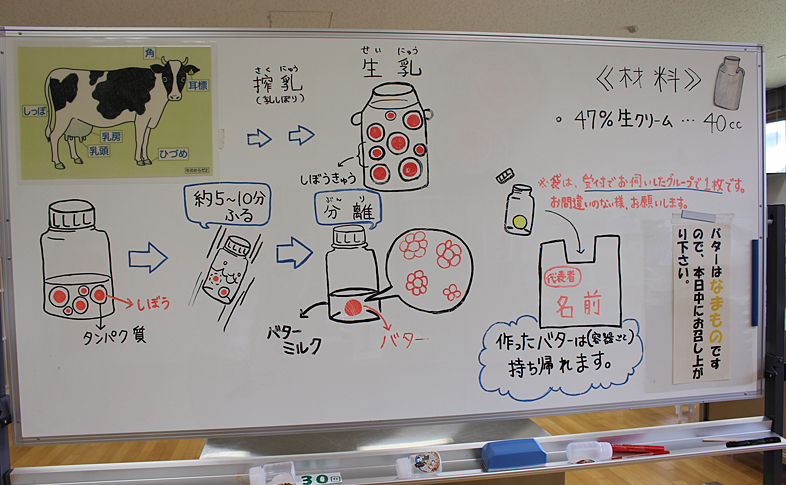 角
耳標
しっぽ
乳房
乳頭
ひづめ
さく にゅう
搾乳
(乳しぼり)
せい にゅう
生乳
しぼうきゅう
《材料》
。47%生クリーム…40cc
約5~10分
ふる
ぶん り
分離
しぼう
タンパク質
バター
ミルク
バター
※袋は、受付でお伺いしたグループで1枚です。
お間違いのない様、お願いします。
代表者
名前
作ったバターは(容器ごと)
持ち帰れます。
バターはなまものです
ので、本日中にお召し上が
り下さい。
30回